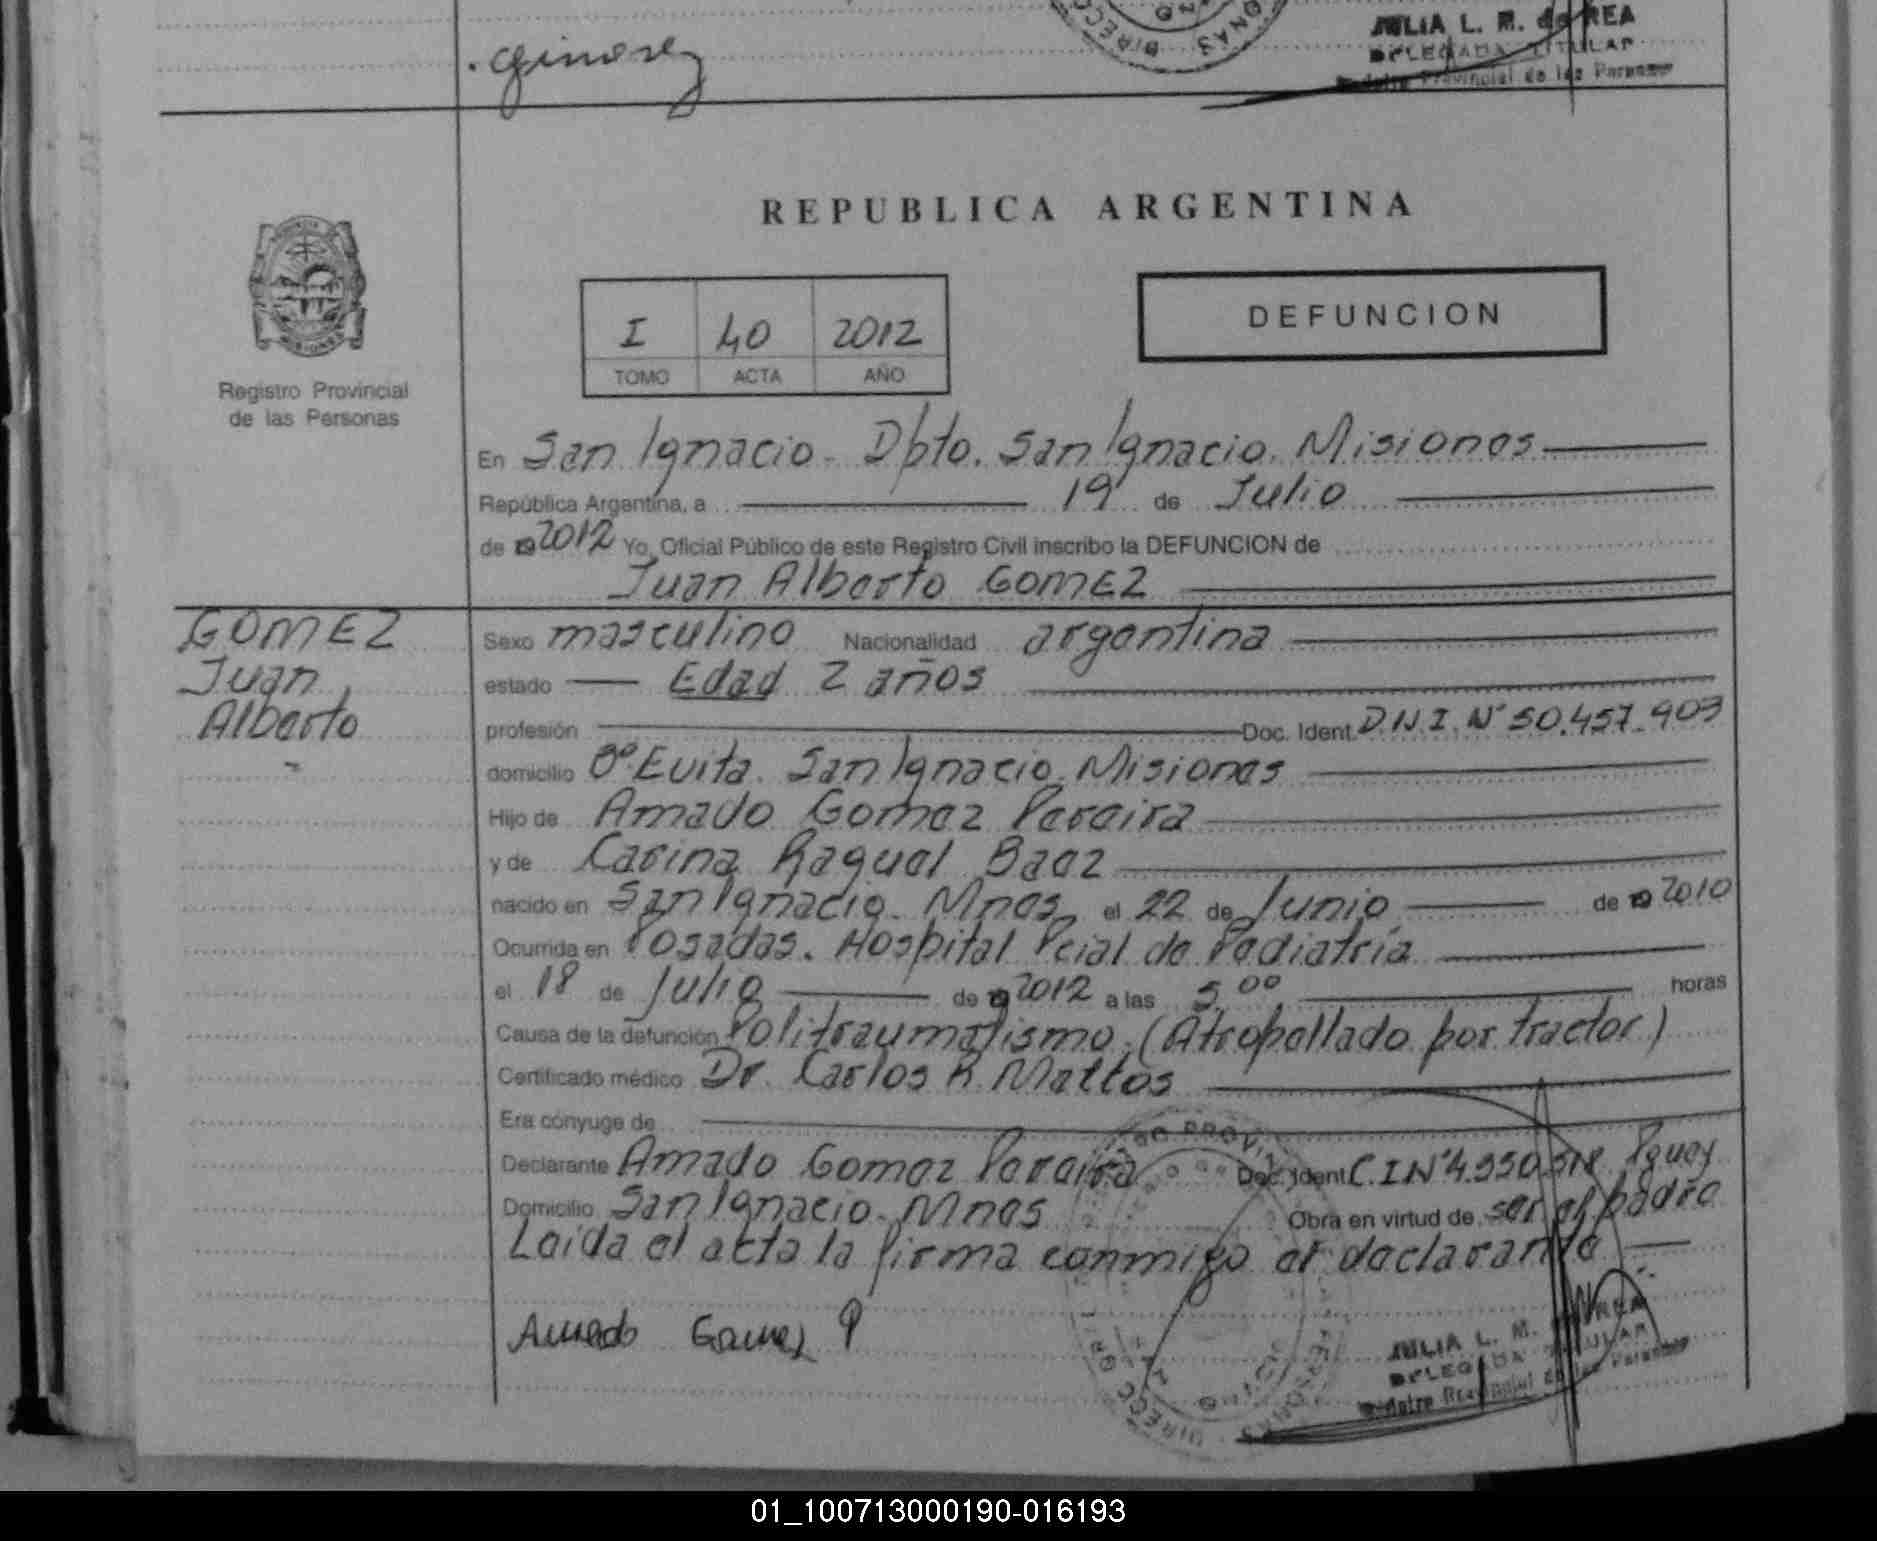 Gimenez
JULIA L. M. de REA
DELEGADA TITULAR
Registro Provincial de las Personas
REPUBLICA ARGENTINA
DEFUNCION
I 40 2012
TOMO ACTA AÑO
Registro Provincial
de las Personas
En San Ignacio - Dpto. San Ignacio. Misiones
República Argentina, a 19 de Julio
de 19 2012 Yo, Oficial Público de este Registro Civil inscribo la DEFUNCION de
Juan Alberto GOMEZ
GOMEZ
Juan
Alberto
Sexo masculino Nacionalidad argentina
estado — Edad 2 años
profesión Doc. Ident. D.N.I. Nº 50.457.903
domicilio Bº Evita. San Ignacio. Misiones
Hijo de Amado Gomez Pereira
y de Carina Raquel Baez
nacido en San Ignacio. Mnes. el 22 de Junio de 19 2010
Ocurrida en Posadas. Hospital Pcial de Pediatría
el 18 de Julio de 19 2012 a las 5,00 horas
Causa de la defunción Politraumatismo, (Atropellado por tractor)
Certificado médico Dr. Carlos R. Mattos
Era cónyuge de
Declarante Amado Gomez Pereira Doc. Ident. C.I Nº Pguay
Domicilio San Ignacio. Mnes Obra en virtud de ser el padre
Leída el acta la firma conmigo el declarante
Amado Gomez P
JULIA L. M. de REA
DELEGADA TITULAR
Registro Provincial de las Personas
01_100713000190-016193